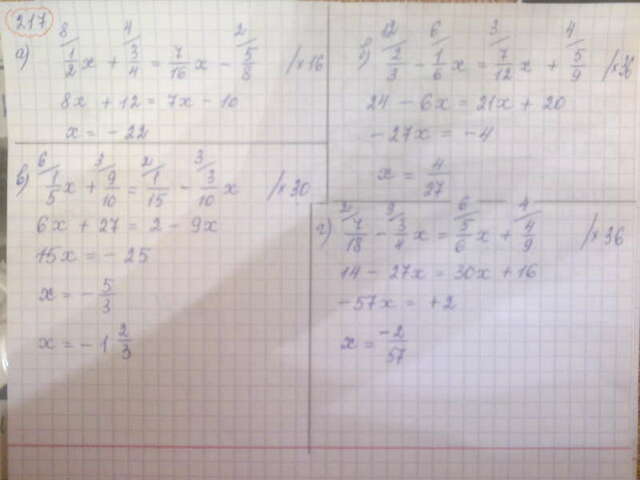 217
а) 8/ 1/2 x + 4/ 3/4 = 7/16 x - 2/ 5/8 /×16
8x + 12 = 7x - 10
x = - 22
б) 12/ 2/3 - 6/ 1/6 x = 3/ 7/12 x + 4/ 5/9 /×36
24 - 6x = 21x + 20
- 27x = - 4
x = 4/27
в) 6/ 1/5 x + 3/ 9/10 = 2/ 1/15 - 3/ 3/10 x /×30
6x + 27 = 2 - 9x
15x = - 25
x = - 5/3
x = - 1 2/3
г) 2/ 7/18 - 9/ 3/4 x = 6/ 5/6 x + 4/ 4/9 /×36
14 - 27x = 30x + 16
- 57x = + 2
x = -2/57